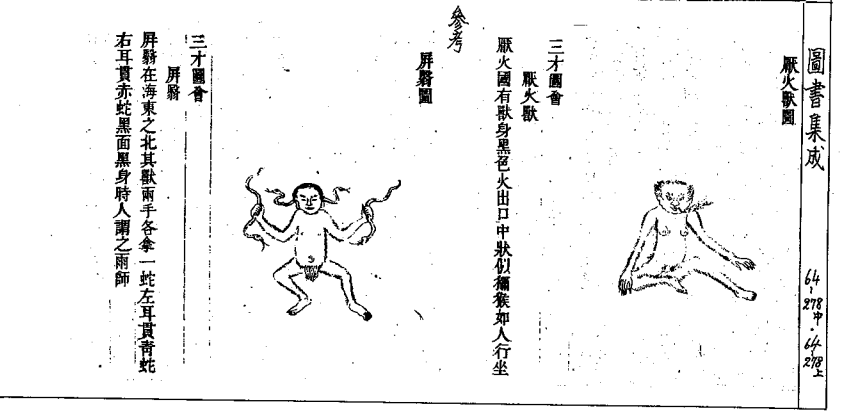 圖書集成
64-278中・64-278上
厭火獸圖
三才圖會
厭火獸
厭火國有獸身黑色火出口中狀似獼猴如人行坐
參考
屏翳圖
三才圖會
屏翳
屏翳在海東之北其獸兩手各拿一蛇左耳貫青蛇
右耳貫赤蛇黑面黑身時人謂之雨師